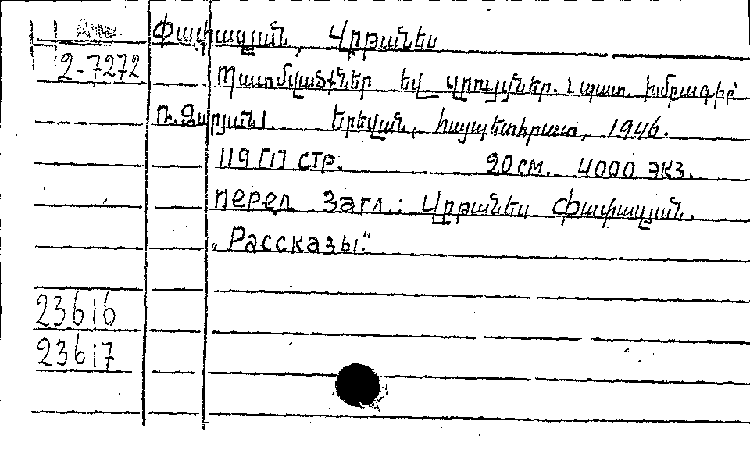 Փափազյան, Վրթանես
2-7272
Պատմվածքներ և զրույցներ. Նպատ. խմբագիր՝
Ռ. Զարյան։ Երևան, հայպետհրատ, 1946.
119 ГП стр. 20 см. 4000 экз.
перел Загл.: Վրթանես Փափազյան.
„Рассказы“
23616
23617